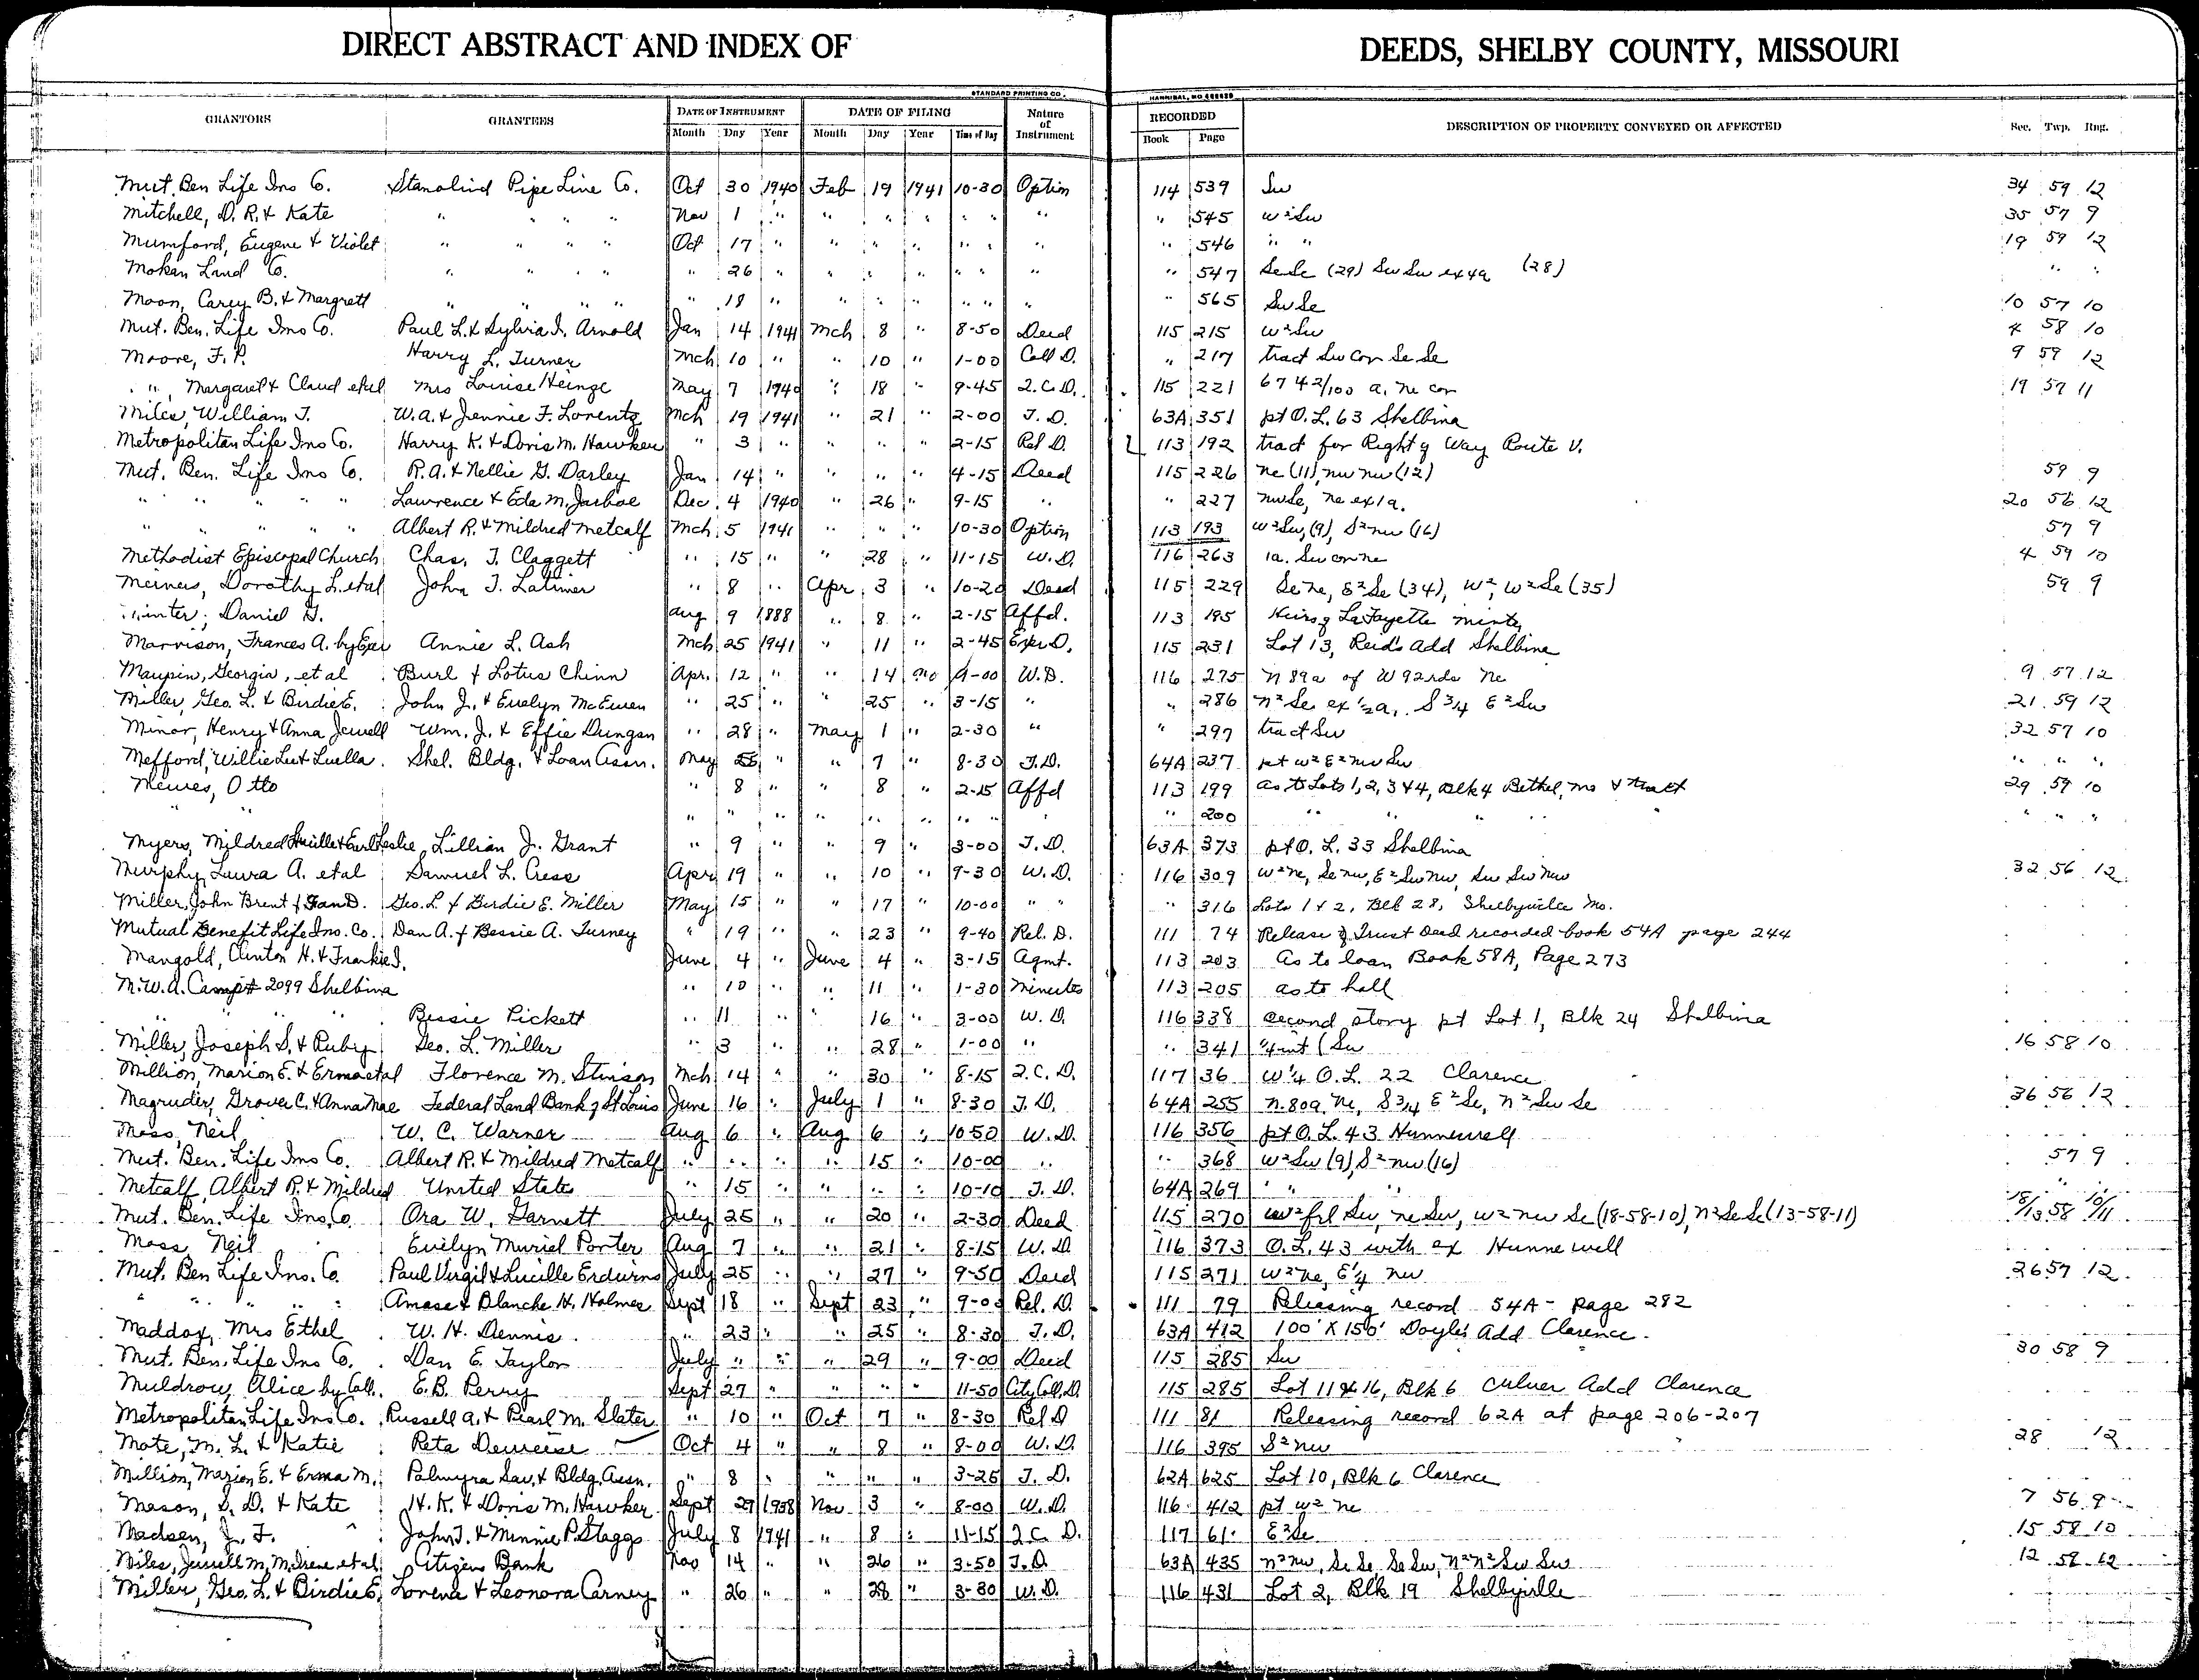 DIRECT ABSTRACT AND INDEX OF DEEDS, SHELBY COUNTY, MISSOURI
STANDARD PRINTING CO., HANNIBAL, MO
GRANTORS GRANTEES DATE OF INSTRUMENT DATE OF FILING Nature of Instrument RECORDED DESCRIPTION OF PROPERTY CONVEYED OR AFFECTED Sec. Twp. Rng.
Month Day Year Month Day Year Time of Day Book Page
Mut. Ben Life Ins Co. Stanolind Pipe Line Co. Oct 30 1940 Feb 19 1941 10-30 Option 114 539 Sw 34 59 12
Mitchell, D. R. & Kate " " " " Nov 1 " " " " " " " " 545 w²Sw 35 57 9
Mumford, Eugene & Violet " " " " Oct 17 " " " " " " " " 546 " " 19 59 12
Mokan Land Co. " " " " " 26 " " " " " " " " 547 SeSe (29) Sw Sw ex 4a (28) " "
Moon, Carey B. & Margrett " " " " " 18 " " " " " " " " 565 Sw Se 10 57 10
Mut. Ben. Life Ins Co. Paul L. & Sylvia I. Arnold Jan 14 1941 Mch 8 " 8-50 Deed 115 215 w²Sw 4 58 10
Moore, F. P. Harry L. Turner Mch 10 " " 10 " 1-00 Coll D. " 217 tract Sw Cor Se Se 9 59 12
" , Margaret & Claud etal Mrs Louise Heinze May 7 1940 " 18 " 9-45 Q.C.D. 115 221 67 42/100 a. Ne cor 19 57 11
Miles, William T. W.A. & Jennie F. Lorentz Mch 19 1941 " 21 " 2-00 T.D. 63A 351 pt O.L. 63 Shelbina
Metropolitan Life Ins Co. Harry K. & Doris M. Hawker " 3 " " " " 2-15 Rel D. 113 192 tract for Right of Way Route V.
Mut. Ben. Life Ins Co. R.A. & Nellie G. Darley Jan 14 " " " " 4-15 Deed 115 226 ne (11), nw nw (12) 59 9
" " " " " Lawrence & Eda M. Jarboe Dec. 4 1940 " 26 " 9-15 " " 227 nwSe, ne ex 1a. 20 56 12
" " " " " Albert R. & Mildred Metcalf Mch 5 1941 " " " 10-30 Option 113 193 w²Sw, (9), S²nw (16) 57 9
Methodist Episcopal Church Chas. T. Claggett " 15 " " 28 " 11-15 W.D. 116 263 1a. Sw cor ne 4 59 10
Meiners, Dorothy L. etal John T. Latimer " 8 " Apr 3 " 10-20 Deed 115 229 Se ne, E²Se (34), W², w²Se (35) 59 9
Minter, Daniel G. Aug 9 1888 " 8 " 2-15 Affd. 113 195 Heirs of LaFayette Minter
Morrison, Frances A. by Exr Annie L. Ash Mch 25 1941 " 11 " 2-45 Exr D. 115 231 Lot 13, Reid's Add Shelbina
Maupin, Georgia, et al Burl & Lotus Chinn Apr. 12 " " 14 9-00 W.D. 116 275 N 89a of W 92rds Ne 9 57 12
Miller, Geo. L. & Birdie E. John J. & Evelyn McEwen " 25 " " 25 " 3-15 " " 286 n²Se ex ½a, S¾ E²Sw 21 59 12
Minor, Henry & Anna Jewell Wm. J. & Effie Dungan " 28 " May 1 " 2-30 " " 297 tract Sw 32 57 10
Mefford, Willie Lee & Luella Shel. Bldg. & Loan Assn. May " " 7 " 8-30 T.D. 64A 237 pt w² E²nw Sw " " "
Mewes, Otto " 8 " " 8 " 2-15 Affd 113 199 as to Lots 1, 2, 3 & 4, Blk 4 Bethel, Mo & tract 29 59 10
" " " " " " " " " " " 200 " " " " " " "
Myers, Mildred Lucille & Earl Leslie Lillian J. Grant " 9 " " 9 " 3-00 T.D. 63A 373 pt O.L. 33 Shelbina
Murphy, Laura A. etal Samuel L. Cress Apr 19 " " 10 " 9-30 W.D. 116 309 W²ne, Se nw, E²Sw nw, Sw Sw nw 32 56 12
Miller, John Brent & Fan D. Geo. L. & Birdie E. Miller May 15 " " 17 " 10-00 " " " 316 Lots 1 & 2, Blk 28, Shelbyville Mo.
Mutual Benefit Life Ins. Co. Dan A. & Bessie A. Turney " 19 " " 23 " 9-40 Rel. D. 111 74 Release of Trust Deed recorded book 54A page 244
Mangold, Clinton H. & Frankie I. June 4 " June 4 " 3-15 Agmt. 113 203 as to loan Book 58A, Page 273
M.W.A. Camp # 2099 Shelbina " 10 " " 11 " 1-30 Minutes 113 205 as to hall
" " " " Bessie Pickett " 11 " " 16 " 3-00 W.D. 116 338 second story pt Lot 1, Blk 24 Shelbina
Miller, Joseph S. & Ruby Geo. L. Miller " 3 " " 28 " 1-00 " " 341 ¼ int (Sw 16 58 10
Million, Marion E. & Erma etal Florence M. Stinson Mch 14 " " 30 " 8-15 Q.C.D. 117 36 W¼ O.L. 22 Clarence
Magruder, Grover C. & Anna Mae Federal Land Bank of St Louis June 16 " July 1 " 8-30 T.D. 64A 255 n.80a, Ne, S¾ E²Se, n²Sw Se 36 56 12
Moss, Neil W. C. Warner Aug 6 " Aug 6 " 10-50 W.D. 116 356 pt O.L. 43 Hunnewell
Mut. Ben. Life Ins Co. Albert R. & Mildred Metcalf " " " " 15 " 10-00 " " 368 W²Sw (9), S²nw (16) 57 9
Metcalf, Albert R. & Mildred United States " 15 " " " " 10-10 T.D. 64A 269 " " " "
Mut. Ben. Life Ins. Co Ora W. Garnett July 25 " " 20 " 2-30 Deed 115 270 W²frl Sw, ne Sw, w²nw Se (18-58-10), N²SeSe (13-58-11) 18/13 58 10/11
Moss, Neil Evelyn Muriel Porter Aug 7 " " 21 " 8-15 W.D. 116 373 O.L. 43 with ex Hunnewell
Mut. Ben Life Ins. Co. Paul Virgil & Lucille July 25 " " 27 " 9-50 Deed 115 271 W²ne, E¼ nw 26 57 12
" " " " " Amase & Blanche H. Holmes Sept 18 " Sept 23 " 9-00 Rel. D. 111 79 Releasing record 54A - page 282
Maddox, Mrs Ethel W. H. Dennis " 23 " " 25 " 8-30 T.D. 63A 412 100' X 150' Doyle's Add Clarence
Mut. Ben. Life Ins Co. Dan E. Taylor July " " " 29 " 9-00 Deed 115 285 Sw 30 58 9
Muldrow, Alice by Coll. E.B. Perry Sept 27 " " " " 11-50 City Coll. D. 115 285 Lot 11 & 16, Blk 6 Culver Add Clarence
Metropolitan Life Ins Co. Russell A. & Pearl M. Slater " 10 " Oct 7 " 8-30 Rel D 111 81 Releasing record 62A at page 206-207
Mote, M. L. & Katie Reta Deweese Oct 4 " " 8 " 8-00 W.D. 116 395 S²nw 28 12
Million, Marion E. & Erma M. Palmyra Sav. & Bldg. Assn. " 8 " " " " 3-25 T.D. 62A 625 Lot 10, Blk 6 Clarence
Mason, S. D. & Kate H. K. & Doris M. Hawker Sept 29 1938 Nov 3 " 8-00 W.D. 116 412 pt w² ne 7 56 9
Madsen, J. F. John T. & Minnie P. Staggs July 8 1941 " 8 " 11-15 Q.C.D. 117 61 E²Se 15 58 10
Miles, Jewell M, M. Irene et al Citizens Bank Nov 14 " " 26 " 3-50 T.D. 63A 435 n²nw, Se Se, Se Sw, N²n²Sw Sw 12 58 12
Miller, Geo. L. & Birdie E. Lorene & Leonora Carney " 26 " " 28 " 3-30 W.D. 116 431 Lot 2, Blk 19 Shelbyville